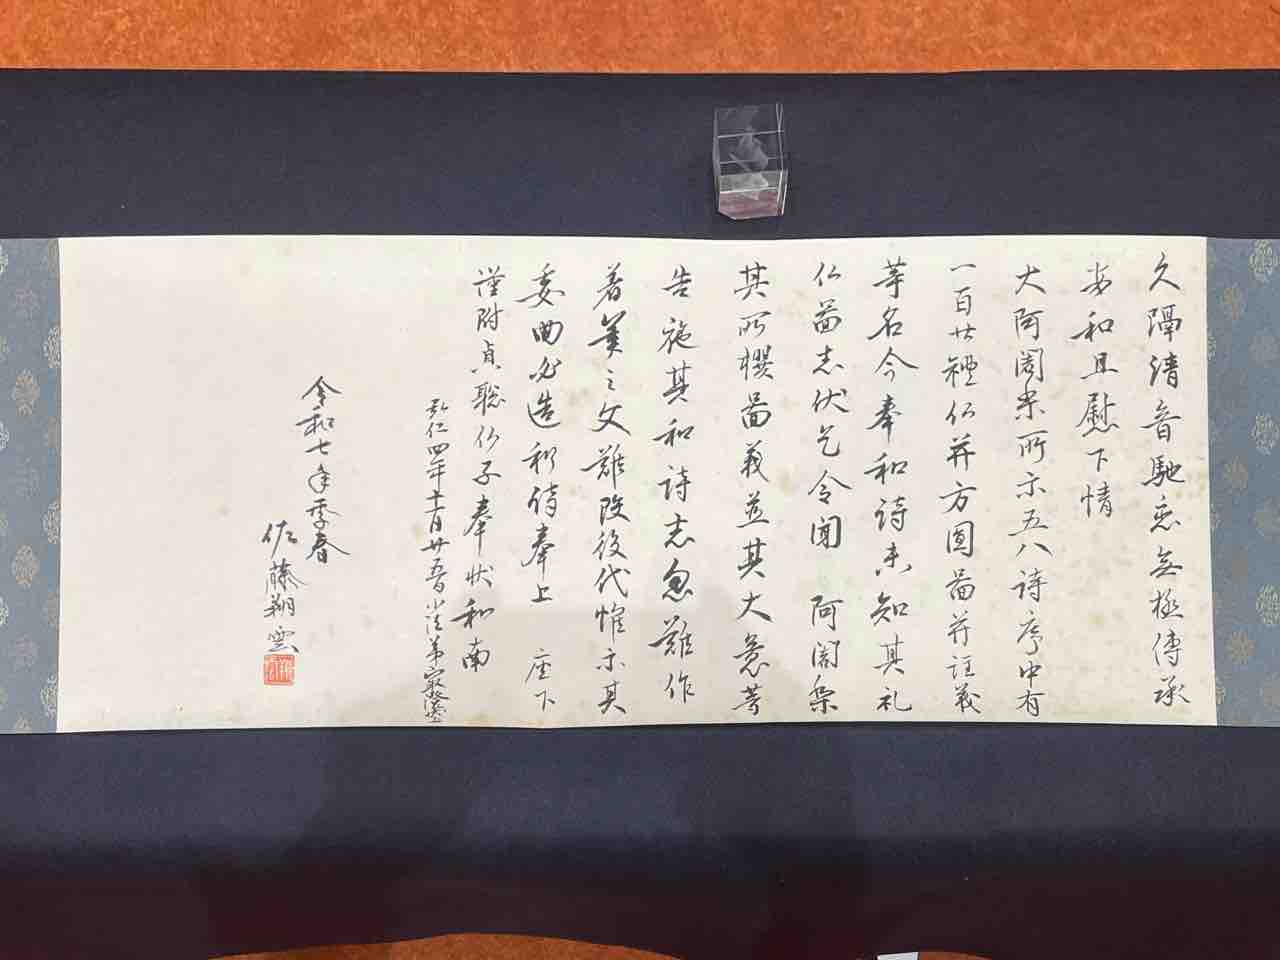 久隔清音馳恋無極傳承
安和且慰下情
大阿闍梨所示五八詩序中有
一百廿禮仏并方圓圖并註義
等名今奉和詩未知其礼
仏圖志伏乞令聞 阿闍梨
其所撰圖義並其大意等
告施其和詩志忽難作
著筆之文難改後代惟示其
委曲必造和詩奉上 座下
謹附貞聡仏子奉状和南
弘仁四年十一月廿五日小法弟最澄
令和七年季春
佐藤翔雲